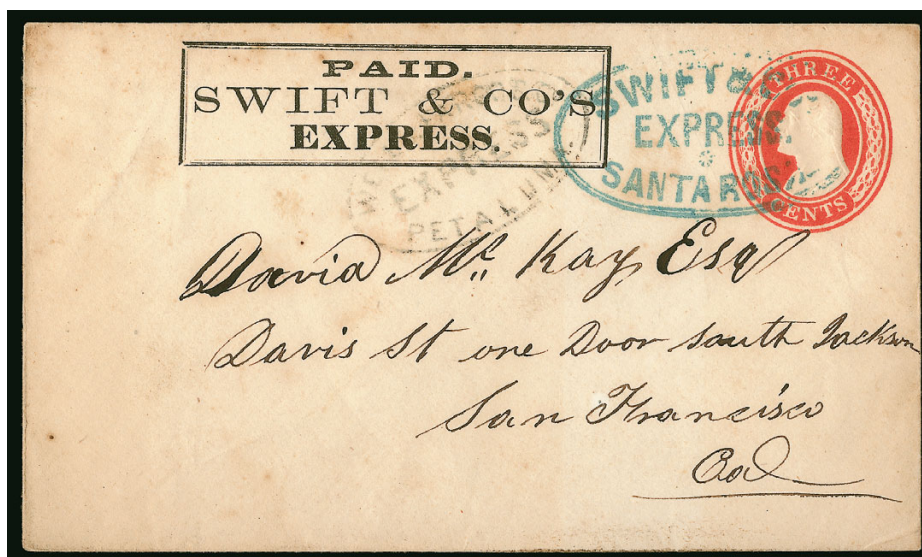 PAID.
SWIFT & CO'S
EXPRESS.
EXPRESS
PETALUMA
SWIFT & CO'S
EXPRESS.
SANTA ROSA
THREE
CENTS
David Mc. Kay Esq
Davis St one Door South Jackson
San Francisco
Cal